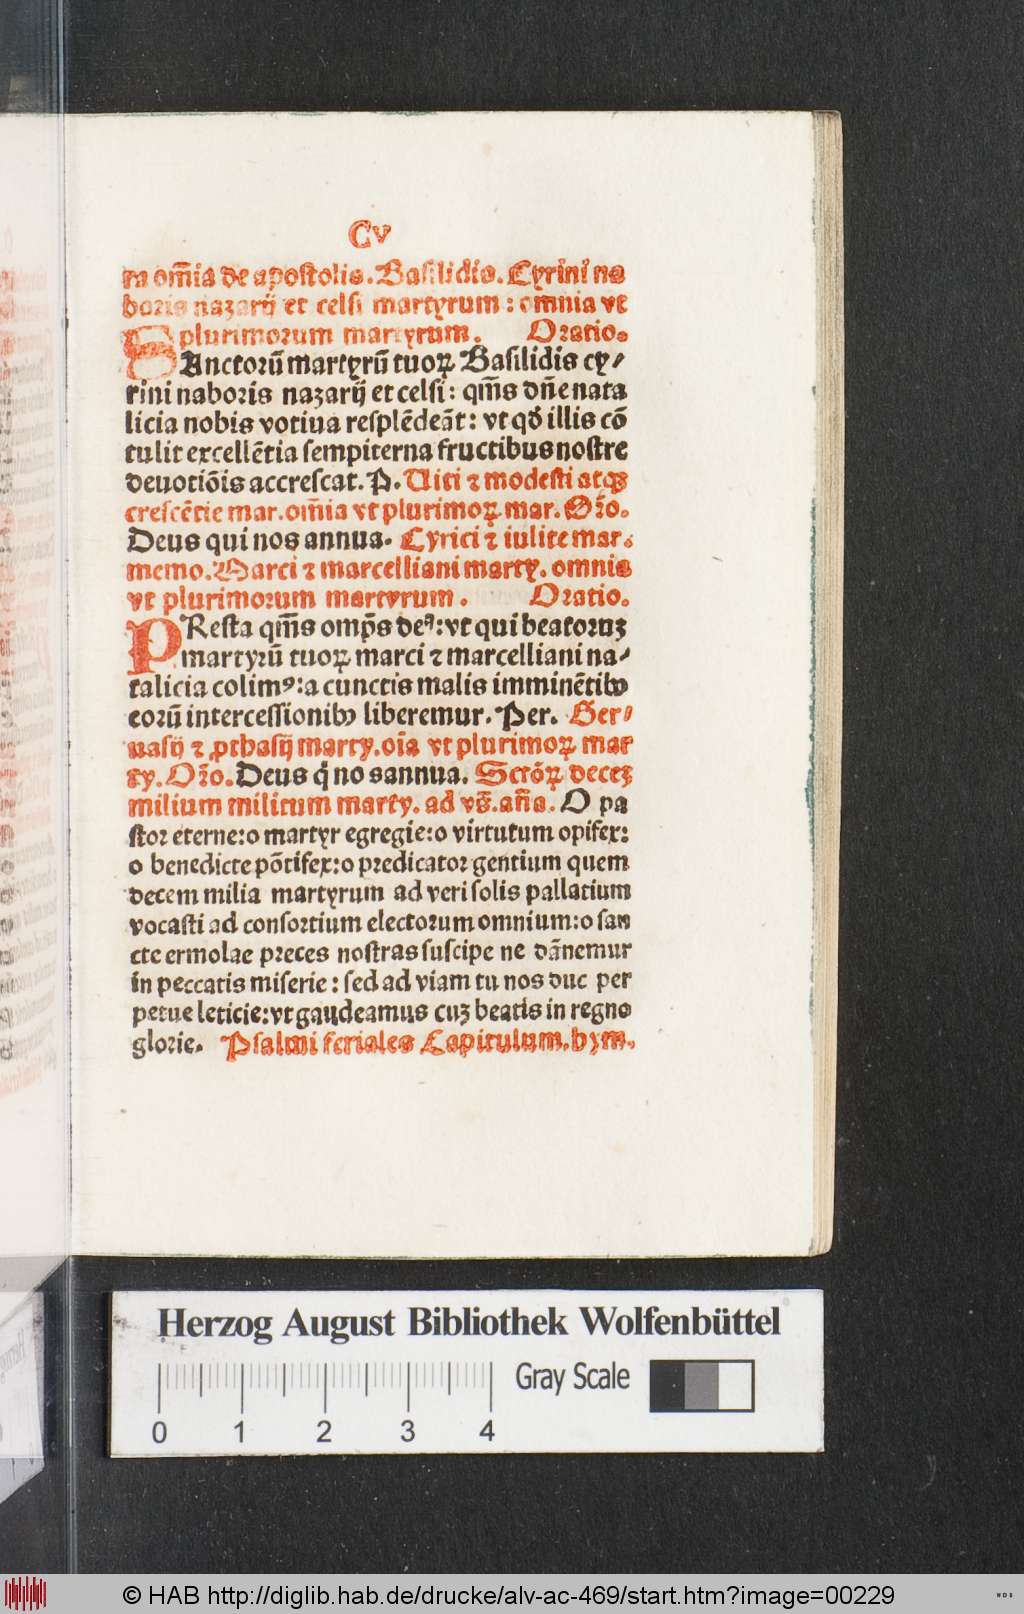 Cv
ra om̄ia de apostolis. Basilidis. Cyrini na
boris nazarij et celsi martyrum: omnia vt
plurimorum martyrum. Oratio.
SAnctorū martyrū tuoꝝ Basilidis cy/
rini naboris nazarij et celsi: qm̄s dn̄e nata
licia nobis votiua resplēdeāt: vt qđ illis cō
tulit excellētia sempiterna fructibus nostre
deuotiōis accrescat. P. Uiti ⁊ modesti atqꝫ
crescētie mar. om̄ia vt plurimoꝝ mar. Or̄o.
Deus qui nos annua. Cyrici ⁊ iulite mar.
memo. Marci ⁊ marcelliani marty. omnia
vt plurimorum martyrum. Oratio.
PResta qm̄s omp̄s deꝰ: vt qui beatoruꝫ
martyrū tuoꝝ marci ⁊ marcelliani na/
talicia colimꝰ: a cunctis malis imminētibꝰ
eorū intercessionibꝰ liberemur. Per. Ger/
uasij ⁊ ꝓthasij marty. oīa vt plurimoꝝ mar
ty. Or̄o. Deus q̇ no sannua. Sctōꝝ deceꝫ
milium militum marty. ad vs̄. an̄a. O pa
stor eterne: o martyr egregie: o virtutum opifex:
o benedicte pōtifex: o predicator gentium quem
decem milia martyrum ad veri solis pallatium
vocasti ad consortium electorum omnium: o san
cte ermolae preces nostras suscipe ne dānemur
in peccatis miserie: sed ad viam tu nos duc per
petue leticie: vt gaudeamus cuꝫ beatis in regno
glorie. Psalmi feriales Capitulum. hym.
Herzog August Bibliothek Wolfenbüttel
Gray Scale
0 1 2 3 4
© HAB http://diglib.hab.de/drucke/alv-ac-469/start.htm?image=00229